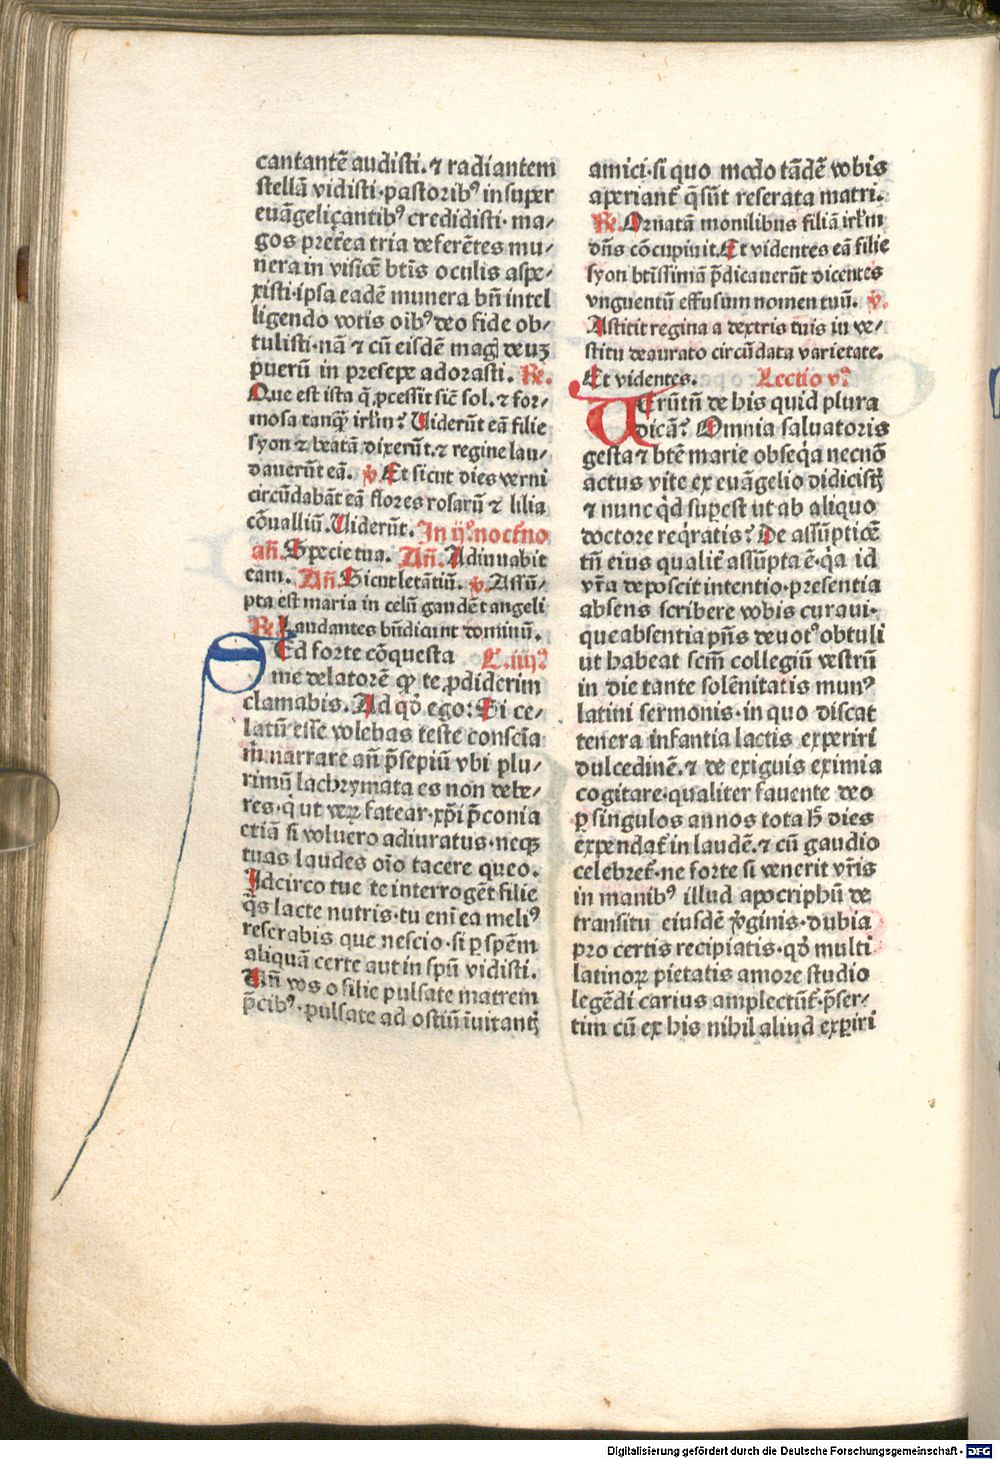 cantantē audisti. ⁊ radiantem
stellā vidisti·pastoribꝰ insuper
euāgeliçantibꝰ credidisti·ma⸗
gos pret̄ea tria deferētes mu⸗
nera in visiōē btīs oculis aspe⸗
xisti·ipsa eadē munera bn̄ intel
ligendo votis oīb⁹ deo fide ob⸗
tulisti·nā ⁊ cū eisdē magꝭ deuꝫ
puerū in presepe adorasti. ℟.
Que est ista q̄ ꝓcessit siċ sol. ⁊ for⸗
mosa tanqȝ irl̄m? Uiderūt eā filie
syon ⁊ beatā dixerūt.⁊ regine lau⸗
dauerūt eā. ℣ Et sicut dies verni
circūdabāt eā flores rosarū ⁊ lilia
cōualliū. Uiderūt. In ij°. noctr̄no
an̄. Specie tua. An̄. Adiuuabit
eam. An̄. Sicut letātiū. ℣. Assū⸗
pta est maria in celū gaudēt angeli
℟ Laudantes bn̄dicunt dominū.
SEd forte cōquesta L. iiij°
me delatorē qꝫ te ꝓdiderim
clamabis. Ad qd̄ ego: Si ce⸗
latū esse volebas teste consciā
m̄ narrare an̄ p̄sepiū vbi plu⸗
rimū lachrymata es non debe⸗
res·q̇ ut veꝝ fatear·xp̄i p̄conia
etiā si voluero adiuratus·neqꝫ
tuas laudes oīo tacere queo.
Idcirco tue te interrogēt filie
q̄s lacte nutris·tu eni ea meliꝰ
reserabis que nescio·si ꝑ spēm
aliquā certe aut in spū vidisti.
An̄ vos o filie pulsate matrem
p̄cibꝰ·pulsate ad ostiū īuitantꝭ
amici·si quo modo tādē vobis
aperiant̄ q̄ sūt reserata matri.
℟. Ornatā monilibus filiā irl̄m
dn̄s cōcupiuit. Et videntes eā filie
syon btīssimā p̄dicauerūt dicentes
vnguentū effusum nomen tuū. ℣.
Astitit regina a dextris tuis in ve⸗
stitu deaurato circūdata varietate.
Et videntes. Lectio v°
UErūtn̄ de his quid plura
dicā? Omnia saluatoris
gesta ⁊ btē marie obseq̇a necnō
actus vite ex euāgelio didicistꝭ
⁊ nunc qd̄ suꝑest ut ab aliquo
doctore reqͥratis? De assūptiōē
tn̄ eius qualit̄ assūpta ē·qͥa id
vr̄a deposcit intentio·presentia
absens scribere vobis curaui·
que absentia pn̄s deuotꝰ obtuli
ut habeat scm̄ collegiū vestrū
in die tante solēnitatis munꝰ
latini sermonis·in quo discat
tenera infantia lactis experiri
dulcedinē.⁊ de exiguis eximia
cogitare·qualiter fauente deo
ꝑ singulos annos tota h̄ dies
expendat̄ in laudē.⁊ cū gaudio
celebret̄·ne forte si venerit vr̄is
in manibꝰ illud apocriphū de
transitu eiusdē v̓ginis·dubia
pro certis recipiatis·qd̄ multi
latinoꝝ pietatis amore studio
legēdi carius amplectūt̄·p̄ser⸗
tim cū ex his nihil aliud experiri
Digitalisierung gefördert durch die Deutsche Forschungsgemeinschaft - DFG